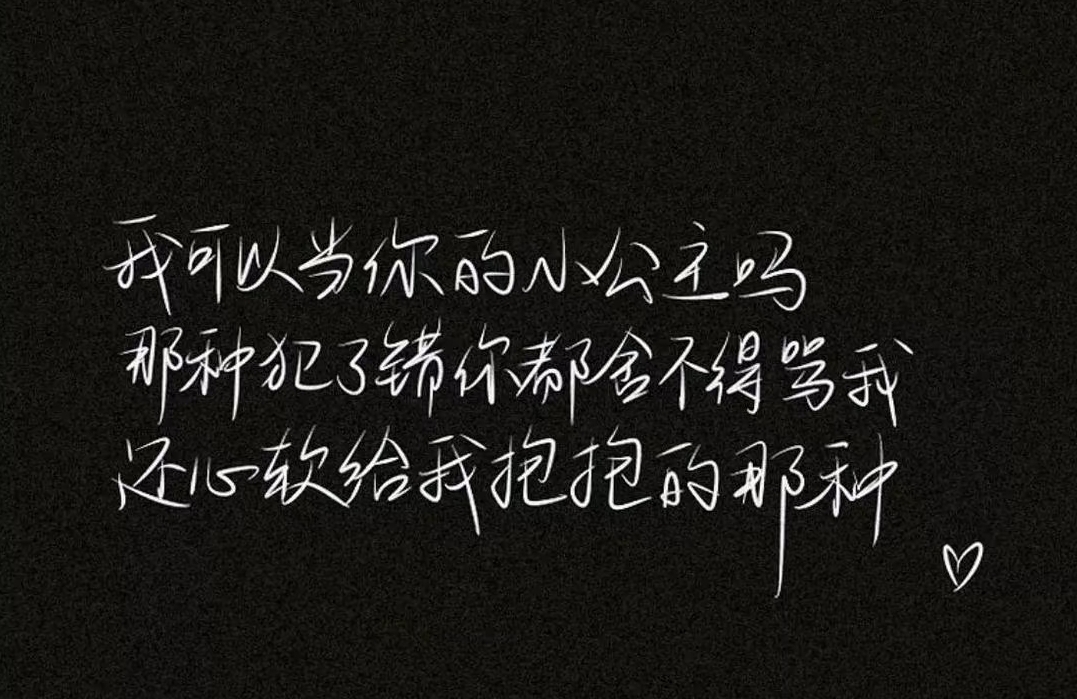 我可以当你的小公主吗
那种犯了错你都舍不得骂我
还心软给我抱抱的那种